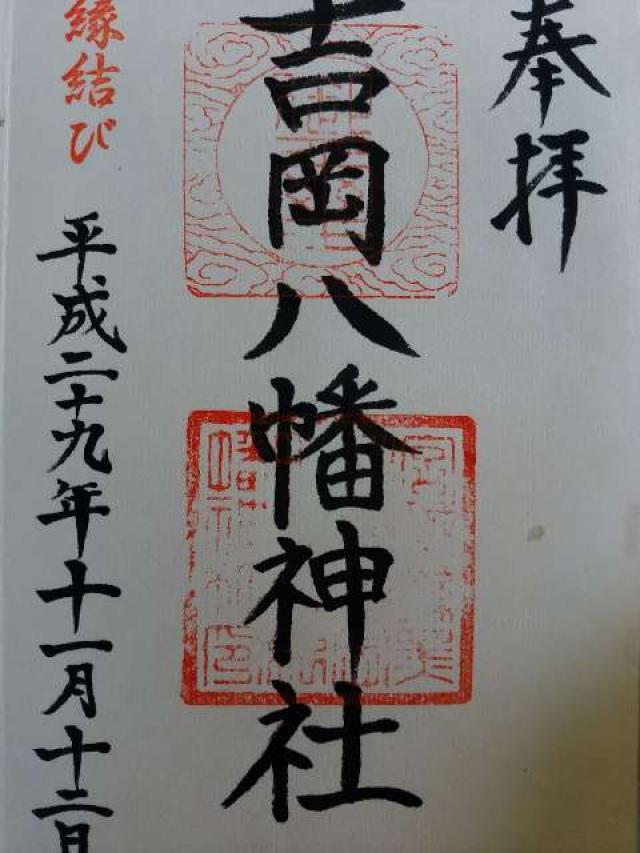 奉拝
吉岡八幡神社
縁結び
平成二十九年十一月十二日